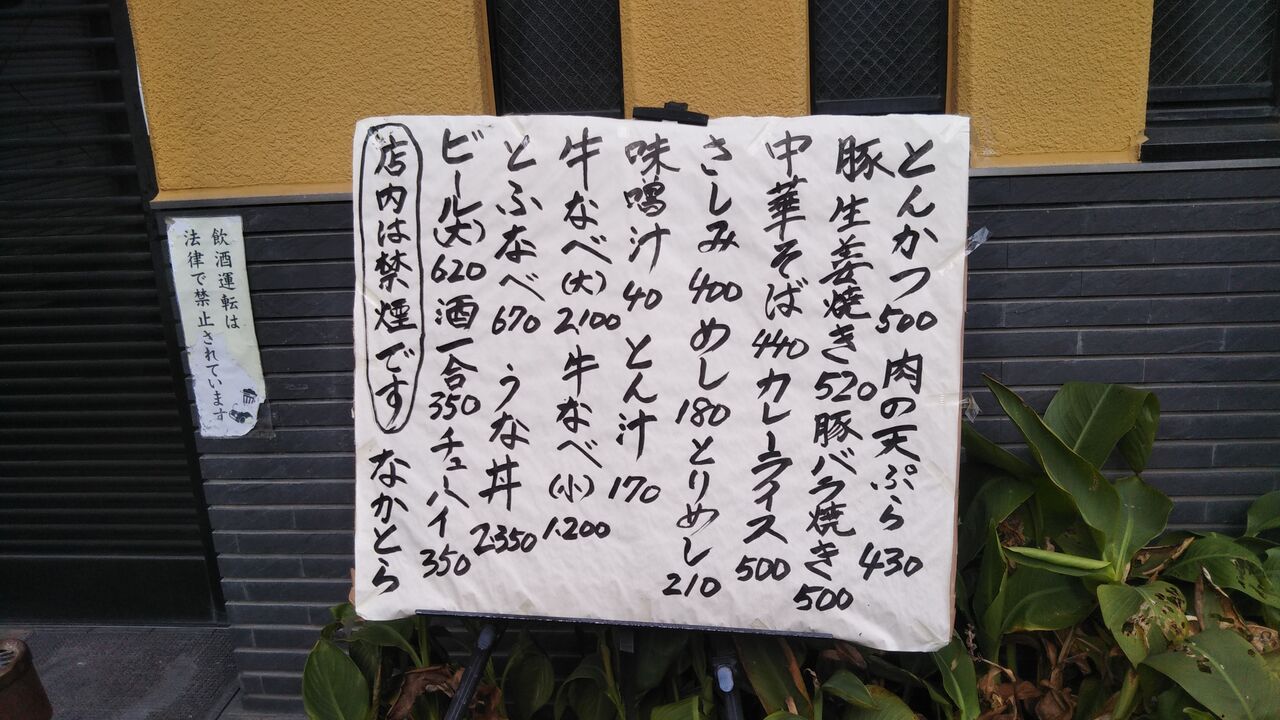 とんかつ500 肉の天ぷら430
豚生姜焼き520 豚バラ焼き500
中華そば440 カレーライス500
さしみ400 めし180 とりめし210
味噌汁40 とん汁170
牛なべ(大)2,100 牛なべ(小)1.200
とふなべ670 うな丼2.350
ビール(大)620 酒一合350 チューハイ350
店内は禁煙です なかとら
飲酒運転は
法律で禁止されています